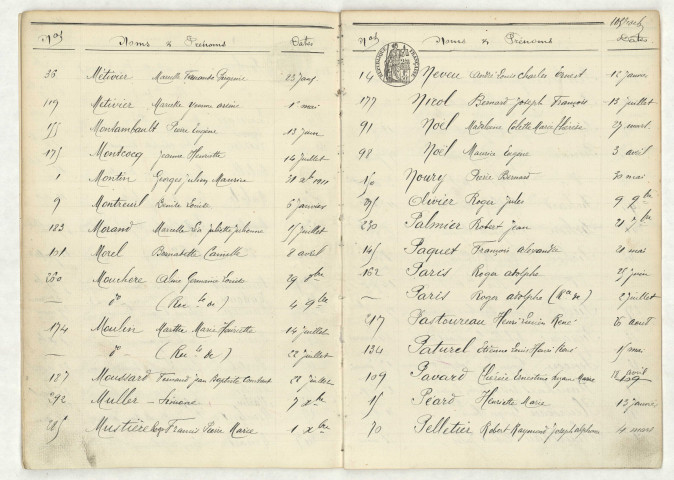 Nos Noms & Prénoms Dates
36 Métivier Marcelle Fernande 23 janv.
119 Métivier Marcelle Yvonne 1er mai
Montambault Pierre Eugène 13 juin
175 Montcocq Jeanne Henriette 14 juillet
1 Montin Georges Julien Maurice 31 xbre 1911
9 Montreuil Emile Louis 6 janvier
183 Morand Marcelle Léa Juliette juillet
101 Morel Bernadette Camille 8 avril
260 Mouchere Alma Germaine Louise 29 8bre
— do (Rec. de) 4 9bre
174 Moulin Marthe Marie Henriette 14 juillet
— do (Rec. de) 22 juillet
187 Moussard Fernand Jean Baptiste Constant juillet
292 Muller Simone 7 xbre
285 Mustière Francis Pierre Marie 1 xbre
Nos Noms & Prénoms Dates
RÉPUBLIQUE FRANÇAISE
14 Neveu André Louis Charles Ernest 12 janvier
177 Nicol Bernard Joseph François 15 juillet
91 Noël Madeleine Colette Marie Thérèse 27 mars
98 Noël Maurice Eugène 3 avril
150 Noury Pierre Bernard 30 mai
Olivier Roger Jules 9 9bre
230 Palmier Robert Jean 21 7bre
145 Paquet François Alexandre 21 mai
162 Paris Roger Adolphe 25 juin
— Paris Roger Adolphe (Rec. de) 2 juillet
217 Pastoureau Henri Lucien René août
134 Paturel Etienne Louis Henri mai
109 Pavard Marie 18 avril
15 Péard Henriette Marie 13 janvier
70 Pelletier Robert Raymond Joseph Alphonse 4 mars